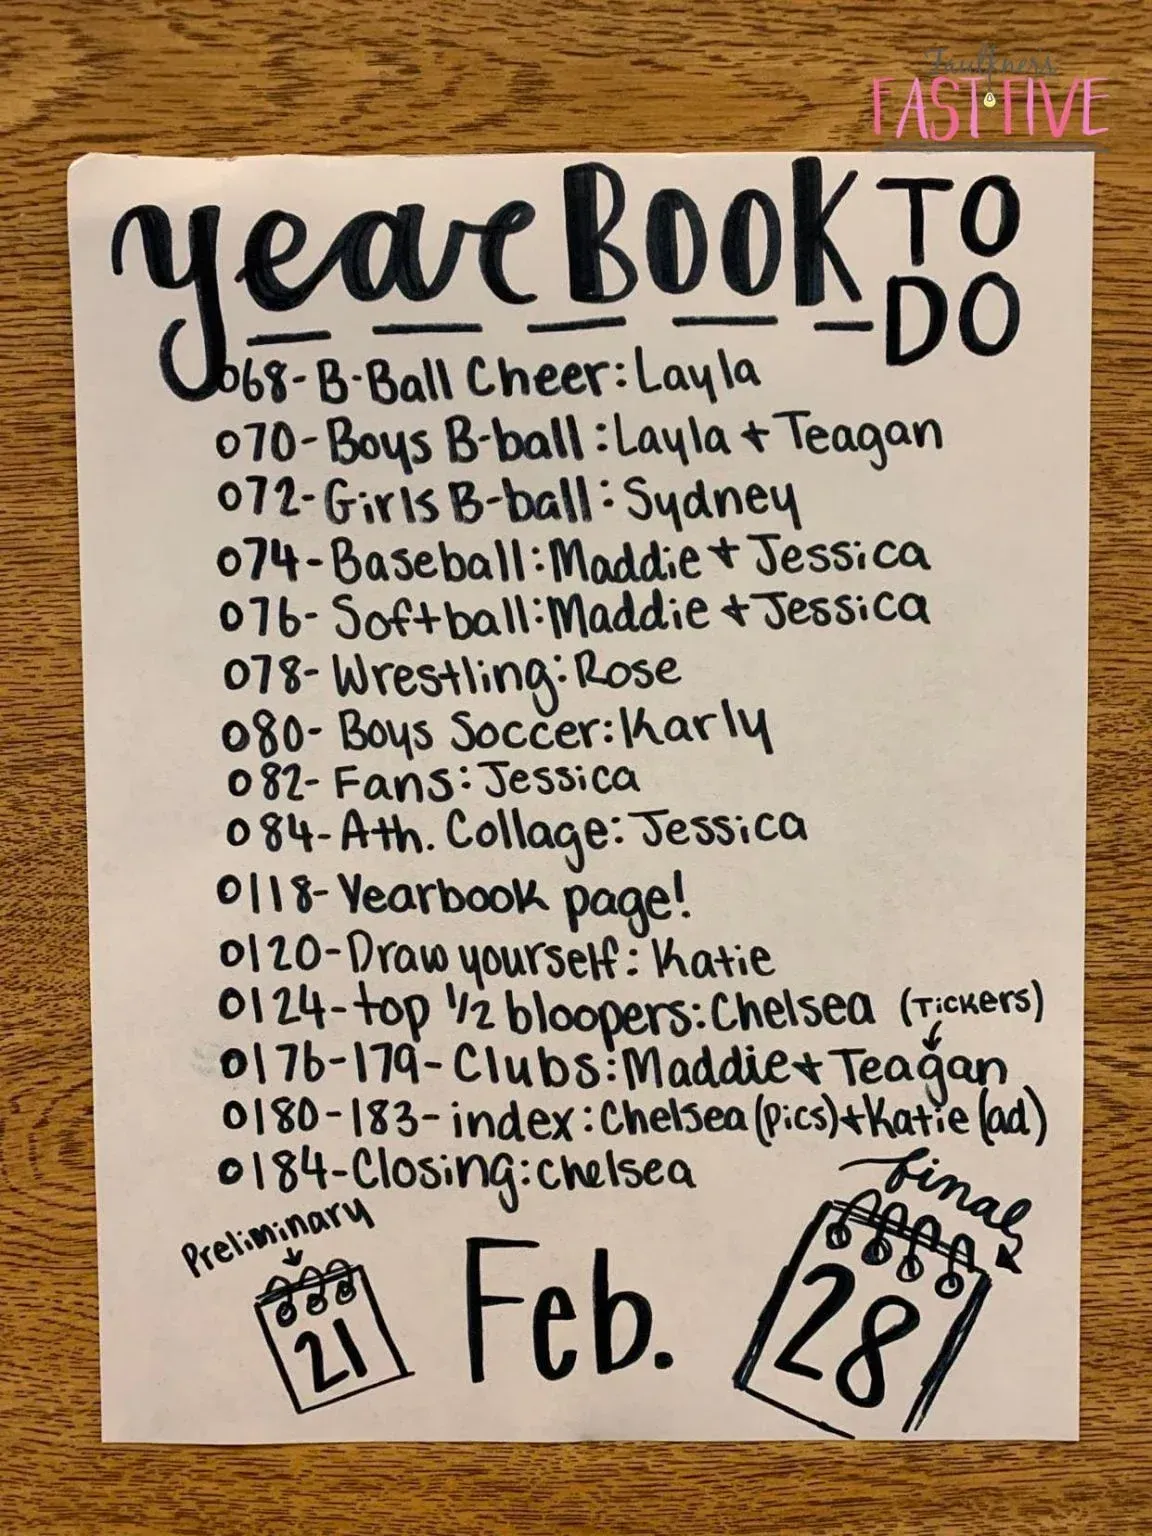 Faulkner's
FAST FIVE
yearBOOK TO DO
068- B-Ball Cheer: Layla
070- Boys B-ball: Layla + Teagan
072- Girls B-ball: Sydney
074- Baseball: Maddie + Jessica
076- Softball: Maddie + Jessica
078- Wrestling: Rose
080- Boys Soccer: Karly
082- Fans: Jessica
084- Ath. Collage: Jessica
0118- Yearbook page!
0120- Draw yourself: Katie
0124- top 1/2 bloopers: Chelsea (Tickers)
0176-179- Clubs: Maddie + Teagan
0180-183- index: Chelsea (pics) + Katie (ad)
0184- Closing: chelsea
Preliminary
21
Feb.
final
28